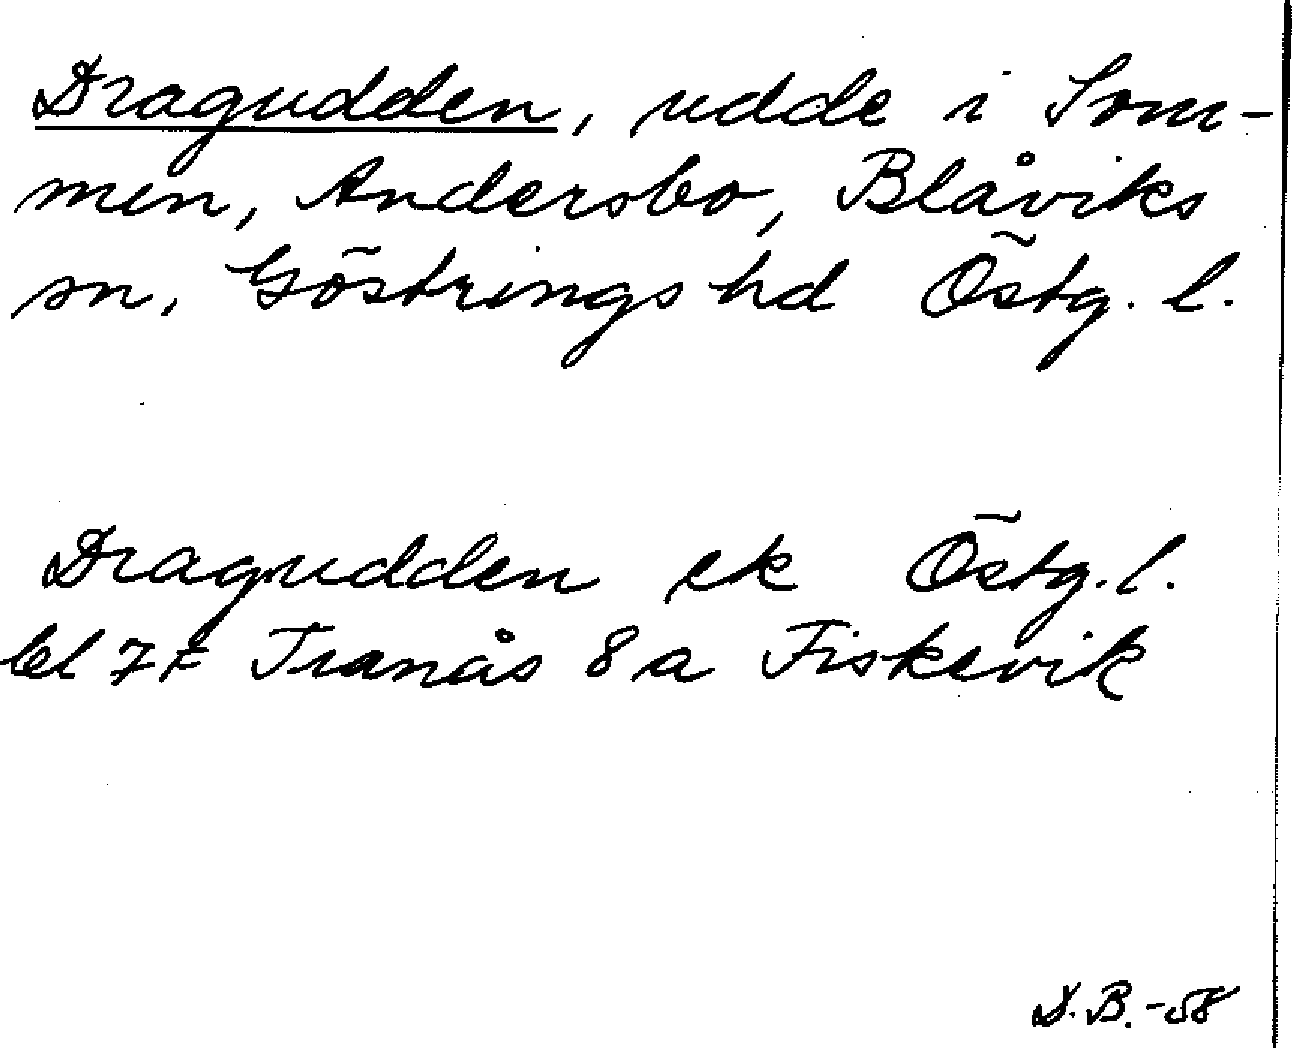 Dragudden, udde i Som-
men, Andersbo, Blåviks
sn, Göstrings hd Östg. l.
Dragudden ek Östg. l.
bl 7F Tranås 8a Fiskevik
D.B.-58